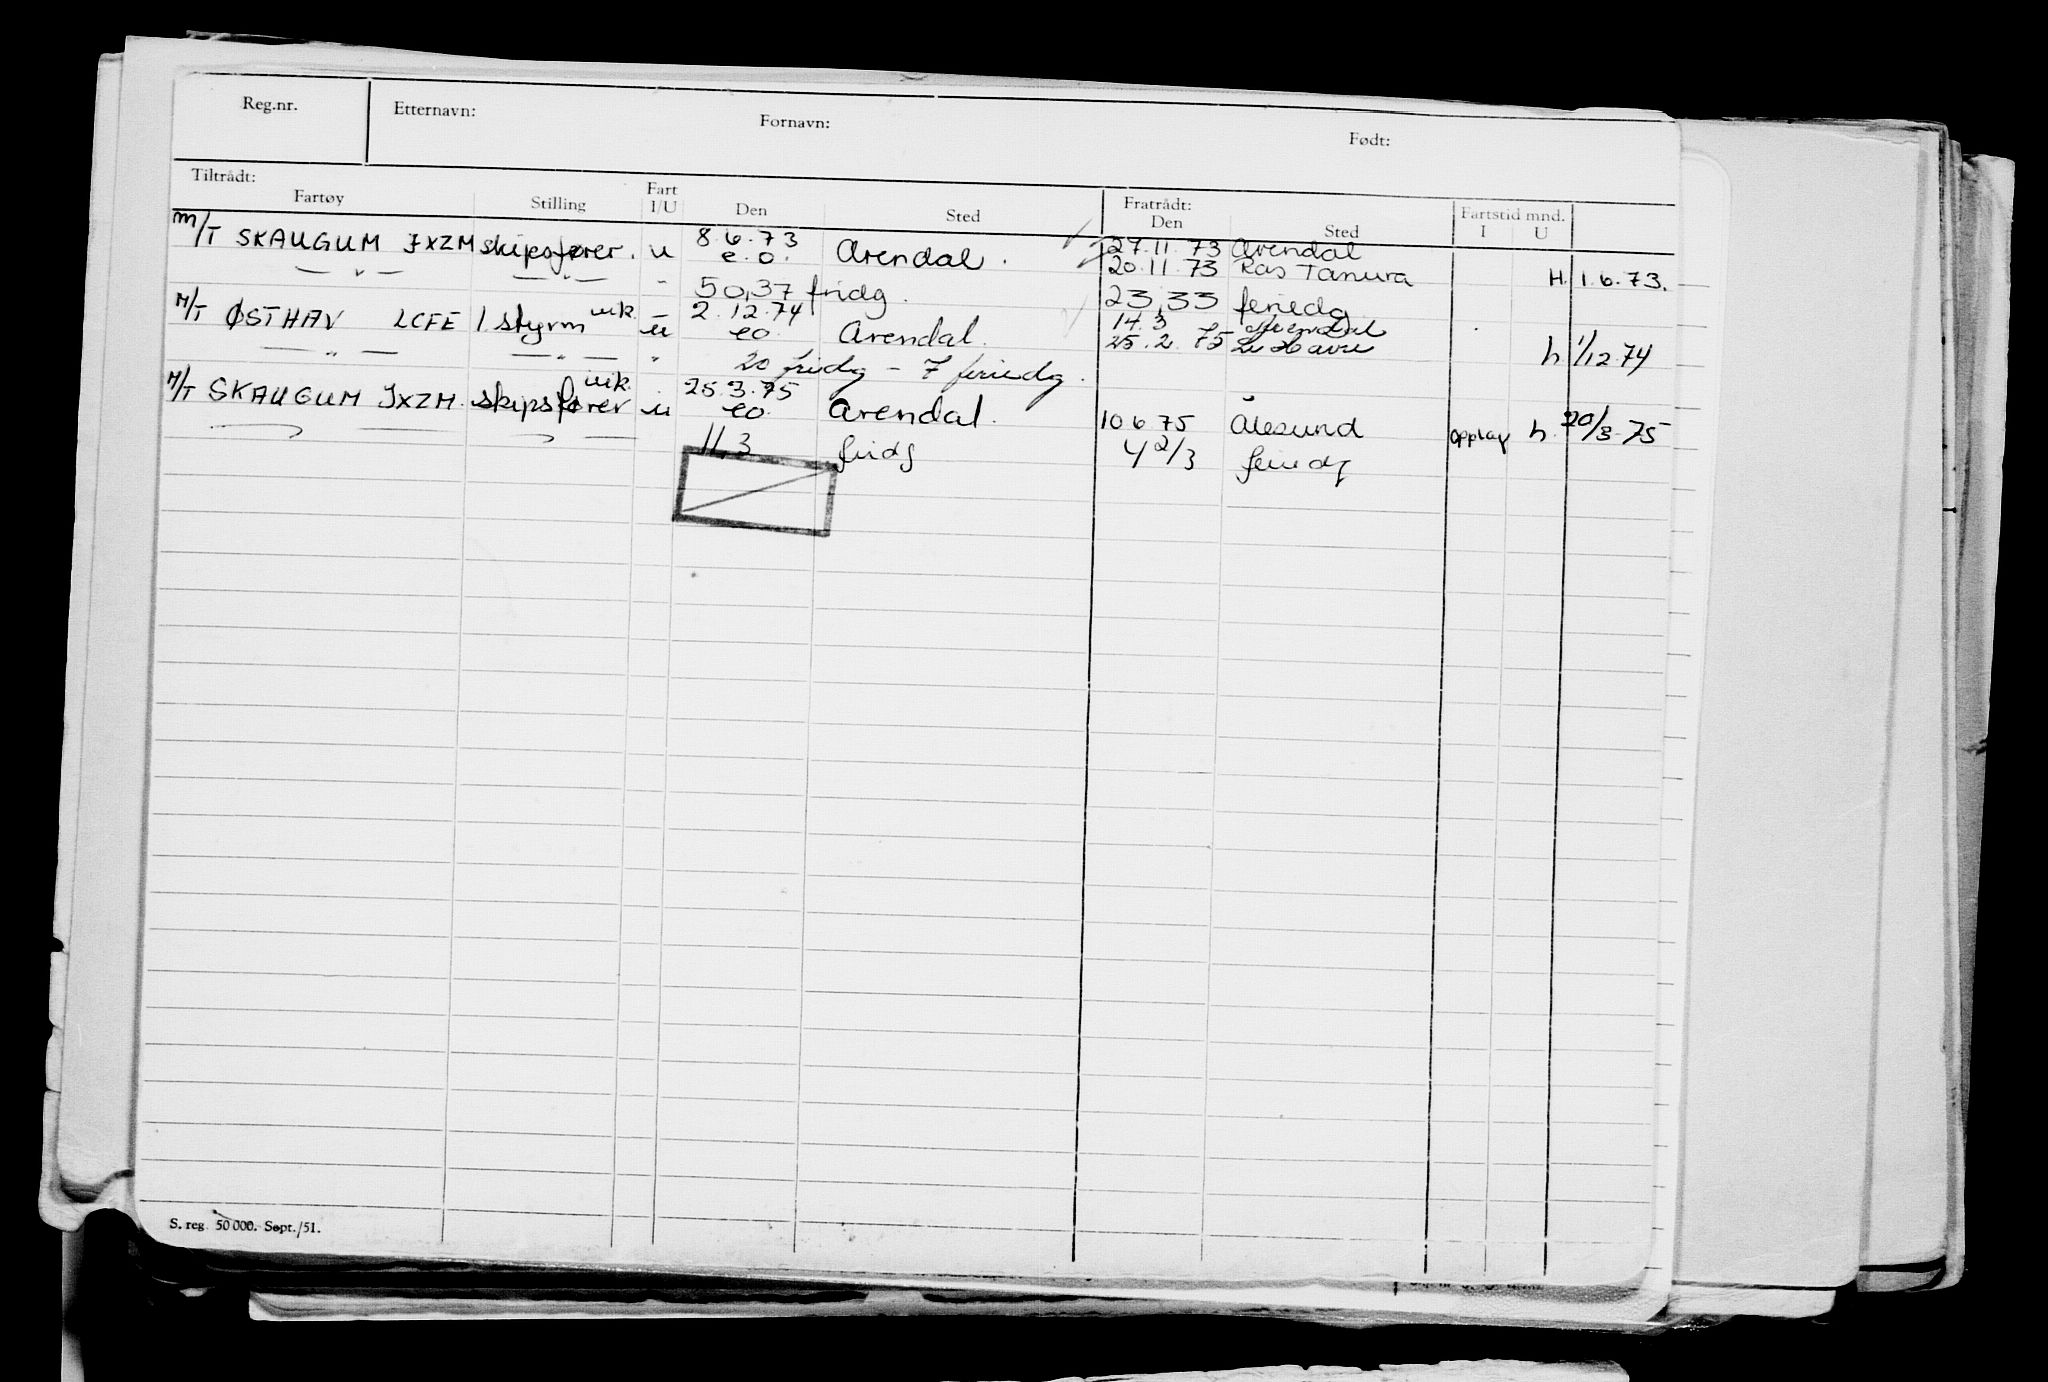 Reg.nr. Etternavn: Fornavn: Født:
Tiltrådt: Fratrådt:
Fartøy Stilling Fart I/U Den Sted Den Sted Fartstid mnd. I U
M/T SKAUGUM JXZM skipsfører. u 8.6.73 e.o. Arendal. 27.11.73 Arendal
— " — — " — " 20.11.73 Ras Tanura H. 1.6.73.
50,37 fridg. 23,33 feriedg
M/T ØSTHAV LCFE 1 styrm vik. u 2.12.74 eo Arendal. 14.3 Arendal
— " — — " — " 25.2.75 Le Havre h 1/12.74
20 fridg – 7 feriedg.
M/T SKAUGUM JXZM. skipsfører vik. u 25.3.75 eo. Arendal. 10 6 75 Ålesund opplag h. 20/3-75
11,3 fridg 4 2/3 feriedg
S. reg. 50 000. Sept./51.